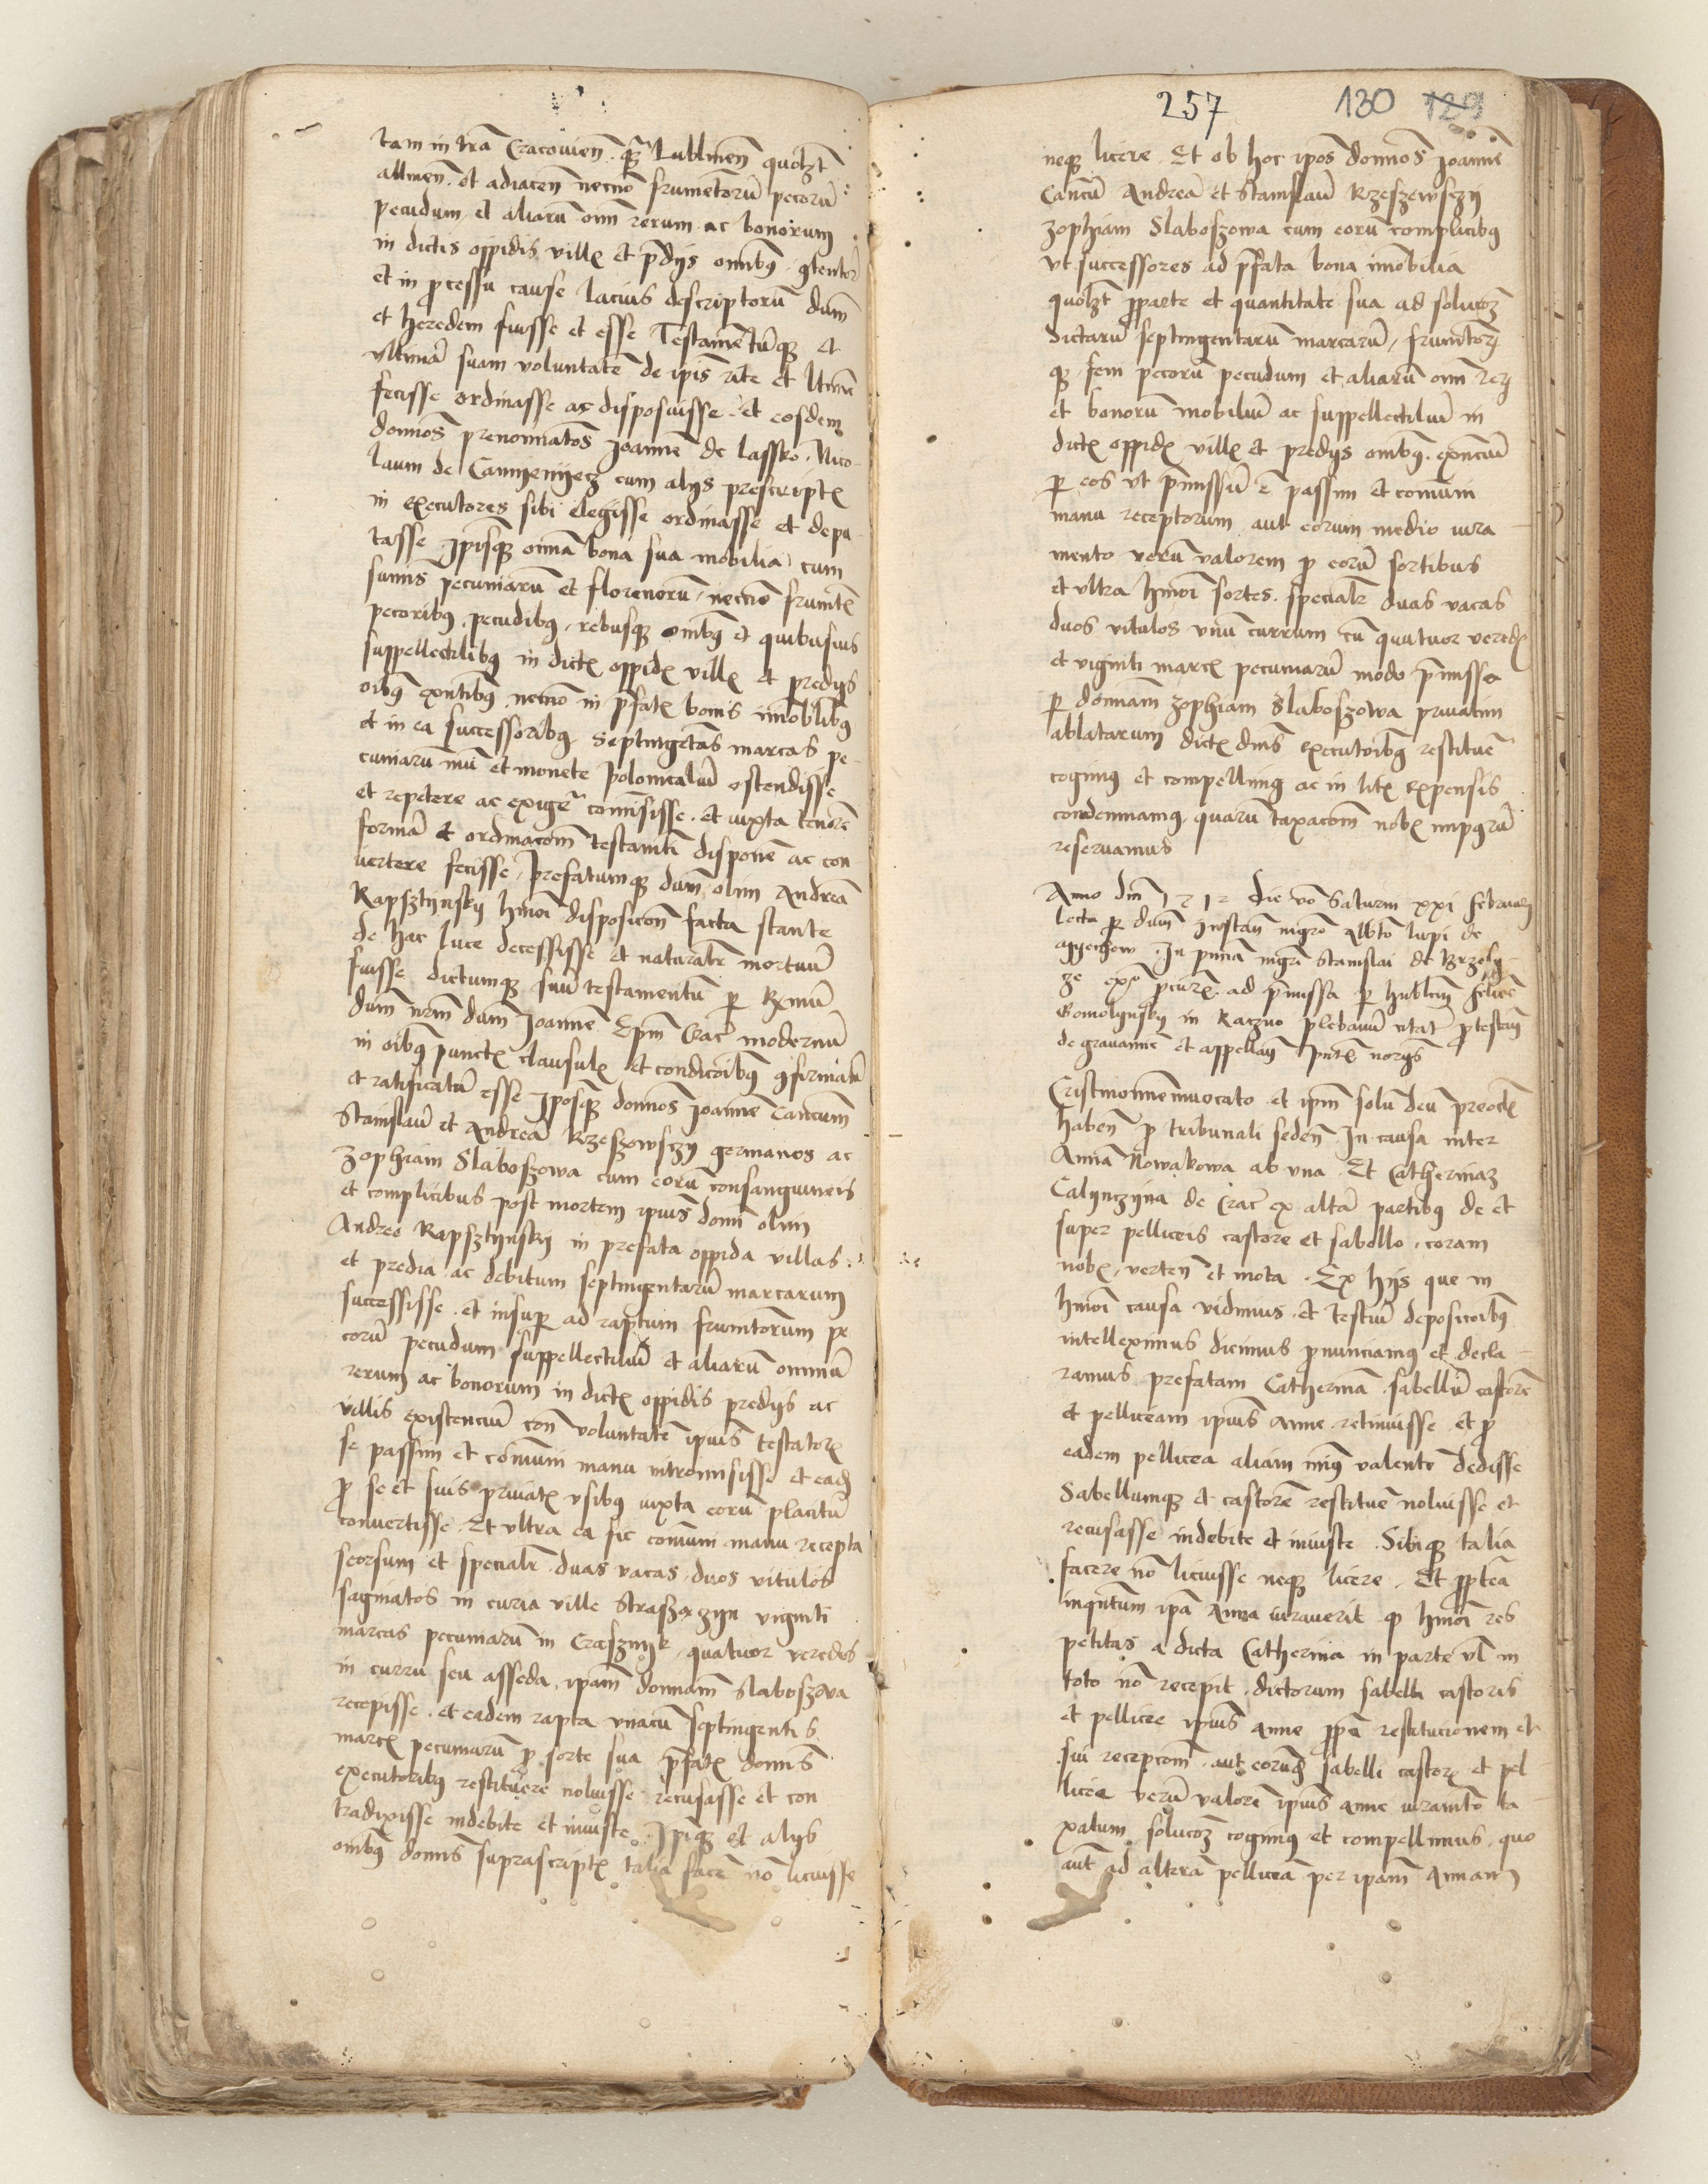 tam in tra Cracouien. qz Lublinen quolzt
allmen. et adiacen necno frumetoru pecoru
pecudum et aliaru oim rerum ac bonorum
in dictis oppidis villis et pdijs omibus gtentor
et in processu cause lacius descriptoru dum
et heredem fuisse et esse Testamentuqz et
vltima suam voluntate de ipis rite et ltime
fecisse ordinasse ac disposuisse. et eosdem
domios prenominatos Joanne de Lassko. Nico-
laum de Camyenyecz cum alijs prescriptis
in executores sibi elegisse ordinasse et depu-
tasse Jpisqz omia bona sua mobilia cum
sumis pecuniaru et florenoru necno frumetis
pecoribus, pecudibus, rebusqz omibus et quibusuis
suppellectilibus in dictis oppidis villis et predijs
oibus exntibus necno in pfatis bonis imobilibus
et in ea successoribus septingetas marcas pe-
cuniaru nui et monete Polonicaliu ostendisse
et repetere ac exigere comisisse. et iuxta tenore
forma et ordinacom testamti dispone ac con-
uertere fecisse, prefatumqz dum olim Andrea
Rapsztynsky hmoi disposicom facta stante
de hac luce decessisse et naturalr mortuu
fuisse dictumqz suu testamentu per Rmu
dum nrm dum Joanne Epm Crac modernu
in oibus punctis clausulis et condicoibus gfirmatu
et ratificatu esse Jposqz domios Joanne Cancium
Stanislau et Andrea Rzeszowsczy germanos ac
Zophiam Slaboszowa cum eoru consanguineis
et complicibus post mortem ipius domi olim
Andree Rapsztynsky in prefata oppida villas
et predia ac debitum septingentaru marcarum
successisse. et insuper ad raptum frumtorum pe
coru pecudum suppellectiliu et aliaru omniu
rerum ac bonorum in dictis oppidis predijs ac
villis existenciu con voluntate ipius testatoris
se passim et comuni manu intromisisse et eadem
pro se et suis priuatis vsibus iuxta eoru placitu
conuertisse. Et vltra ea sic comuni manu recepta
seorsum et specialr duas vacas, duos vitulos
saginatos in curia ville Strasz zyn viginti
marcas pecuniaru in Crasznyk, quatuor veredos
in curru seu asseda, ipam domnam Slaboszowa
recepisse. et eadem rapta vnacu septingentis
marcis pecuniaru pro sorte sua pfatis domis
executoribus restituere noluisse recusasse et con
tradixisse indebite et iniuste. Jpisqz et alijs
omibus domis suprascriptis talia face no licuisse
257 130 129
neqz licere. Et ob hoc ipos domios Joanne
Canciu Andrea et Stanislau Rzeszewsczy
Zophiam Slaboszowa cum eoru complicibus
vt successores ad pfata bona imobilia
quolzt pparte et quantitate sua ad solucoz
dictaru septingentaru marcaru, frumtorz
qz feni pecoru pecudum et aliaru oim rerz
et bonoru mobiliu ac suppellectiliu in
dictis oppidis villis et predijs omibus. exnciu
per eos vt pmissu e passim et comuni
manu receptorum aut eorum medio iura-
mento veru valorem pro eoru sortibus
et vltra hmoi sortes. specialr duas vacas
duos vitulos vnu currum cu quatuor veredis
et viginti marcis pecuniaru modo pmisso
per domnam Zophiam Slaboszowa priuatim
ablatarum dictis dnis executoribus restitue
cogimus et compellimus ac in litis expensis
condemnamus quaru taxacom nobis impsru
reseruamus
Anno dni 1512 die vo Saturni xxi februarij
lecta per dum instan mgro Albto lupi de
In pnia mgri Stanislai de Brzesy-
ze exo pcuris. ad pmissa per hublem felice
Gomolynsky in Raczno plebanu ntat protestan
de grauamie et appellan pntibus norijs
Cristinomineinuocato et ipm solu deu preoclis
haben pro tribunali seden. In causa inter
Anna Nowakowa ab vna. Et Catherinaz
Calynczyna de Crac ex altra partibus de et
super pelliceis castore et sabello. coram
nobis, verten et mota. Ex hijs que in
hmoi causa vidimus. et testiu deposicoibus
intelleximus dicimus pronunciamus et decla-
ramus prefatam Catherina. sabellu castore
et pelliceam ipius Anne retinuisse. et pro
eadem pellicea aliam minus valente dedisse
Sabellumqz et castore restitue noluisse et
recusasse indebite et iniuste. Sibiqz talia
facere no licuisse neqz licere. Et pptea
inqntum ipa Anna iurauerit qz hmoi res
petitas a dicta Catherina in parte vl in
toto no recepit. dictorum sabelli castoris
et pellicee ipius Anne restitucionem et
sui recepcom. aut eorundem sabelli castoris et pel-
licea veru valore ipius Anne iuramto ta-
xatum solucoz cogimus et compellimus. quo
aut ad altera pellicea per ipam Annam